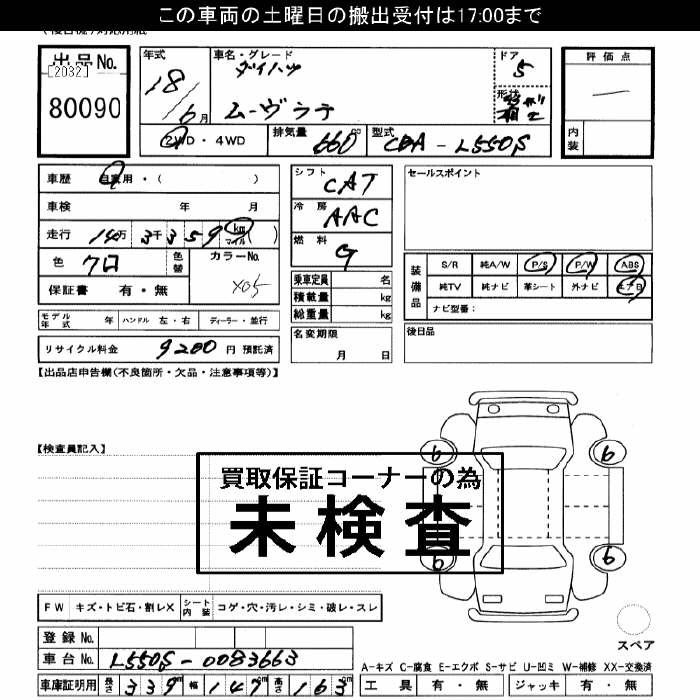 この車両の土曜日の搬出受付は17:00まで
出品No.
[2032]
80090
年式
18
6月
車名・グレード
ダイハツ
ムーヴラテ
ドア
5
形状
評価点
内装
2WD・4WD
排気量 660 cc
型式 CBA-L550S
車歴 自家用・( )
車検 年 月
走行 14万3千359 km マイル ( )
色 クロ 色替
カラーNo.
X05
保証書 有・無
モデル年式 年 ハンドル 左・右 ディーラー・並行
リサイクル料金 9200 円 預託済
シフト CAT
冷房 AAC
燃料 G
乗車定員 名
積載量 kg
総重量 kg
名変期限
月 日
セールスポイント
装備品
S/R 純A/W P/S P/W ABS
純TV 純ナビ 革シート 外ナビ エアB
ナビ型番:
後日品
【出品店申告欄(不良箇所・欠品・注意事項等)】
【検査員記入】
買取保証コーナーの為
未検査
6 6
6 6
スペア
FW キズ・トビ石・割レX シート内装 コゲ・穴・汚レ・シミ・破レ・スレ
登録No.
車台No. L550S-0083663
車庫証明用 長さ 339 cm 幅 147 cm 高さ 163 cm
A-キズ C-腐食 E-エクボ S-サビ U-凹ミ W-補修 XX-交換済
工具 有・無 ジャッキ 有・無